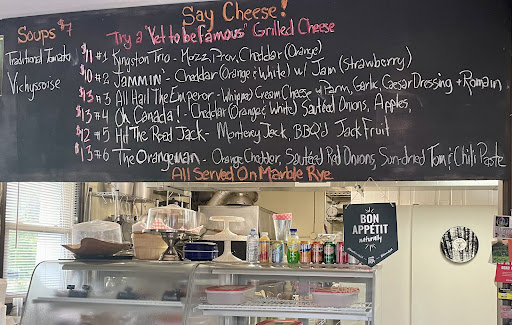 Say Cheese!
Soups $7
Try a "Yet to be Famous" Grilled Cheese
Traditional Tomato
Vichyssoise
$11 #1 Kingston Trio - Mozz, Prov, Cheddar (Orange)
$10 #2 Jammin - Cheddar (Orange & White) w/ Jam (strawberry)
$13 #3 All Hail The Emperor - Whipped Cream Cheese w/ Parm, Garlic, Caesar Dressing + Romain
$13 #4 Oh Canada! - Cheddar (Orange & White) Sautéed Onions, Apples,
$12 #5 Hit The Road Jack - Monterey Jack, BBQ'd Jack Fruit
$13 #6 The Orangeman - Orange Cheddar, Sautéed Red Onions, Sun-dried Tom & Chili Paste
All Served On Marble Rye
BON
APPÉTIT
naturally